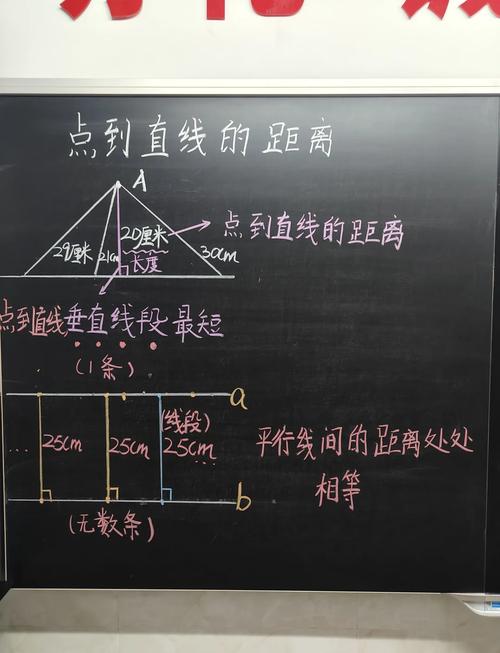 点到直线的距离
A
29厘米
21cm
20厘米
长度
30cm
点到直线的距离
点到直线,垂直线段最短
(1条)
a
...
25cm
25cm
(线段)
25cm
...
平行线间的距离处处
相等
b
(无数条)